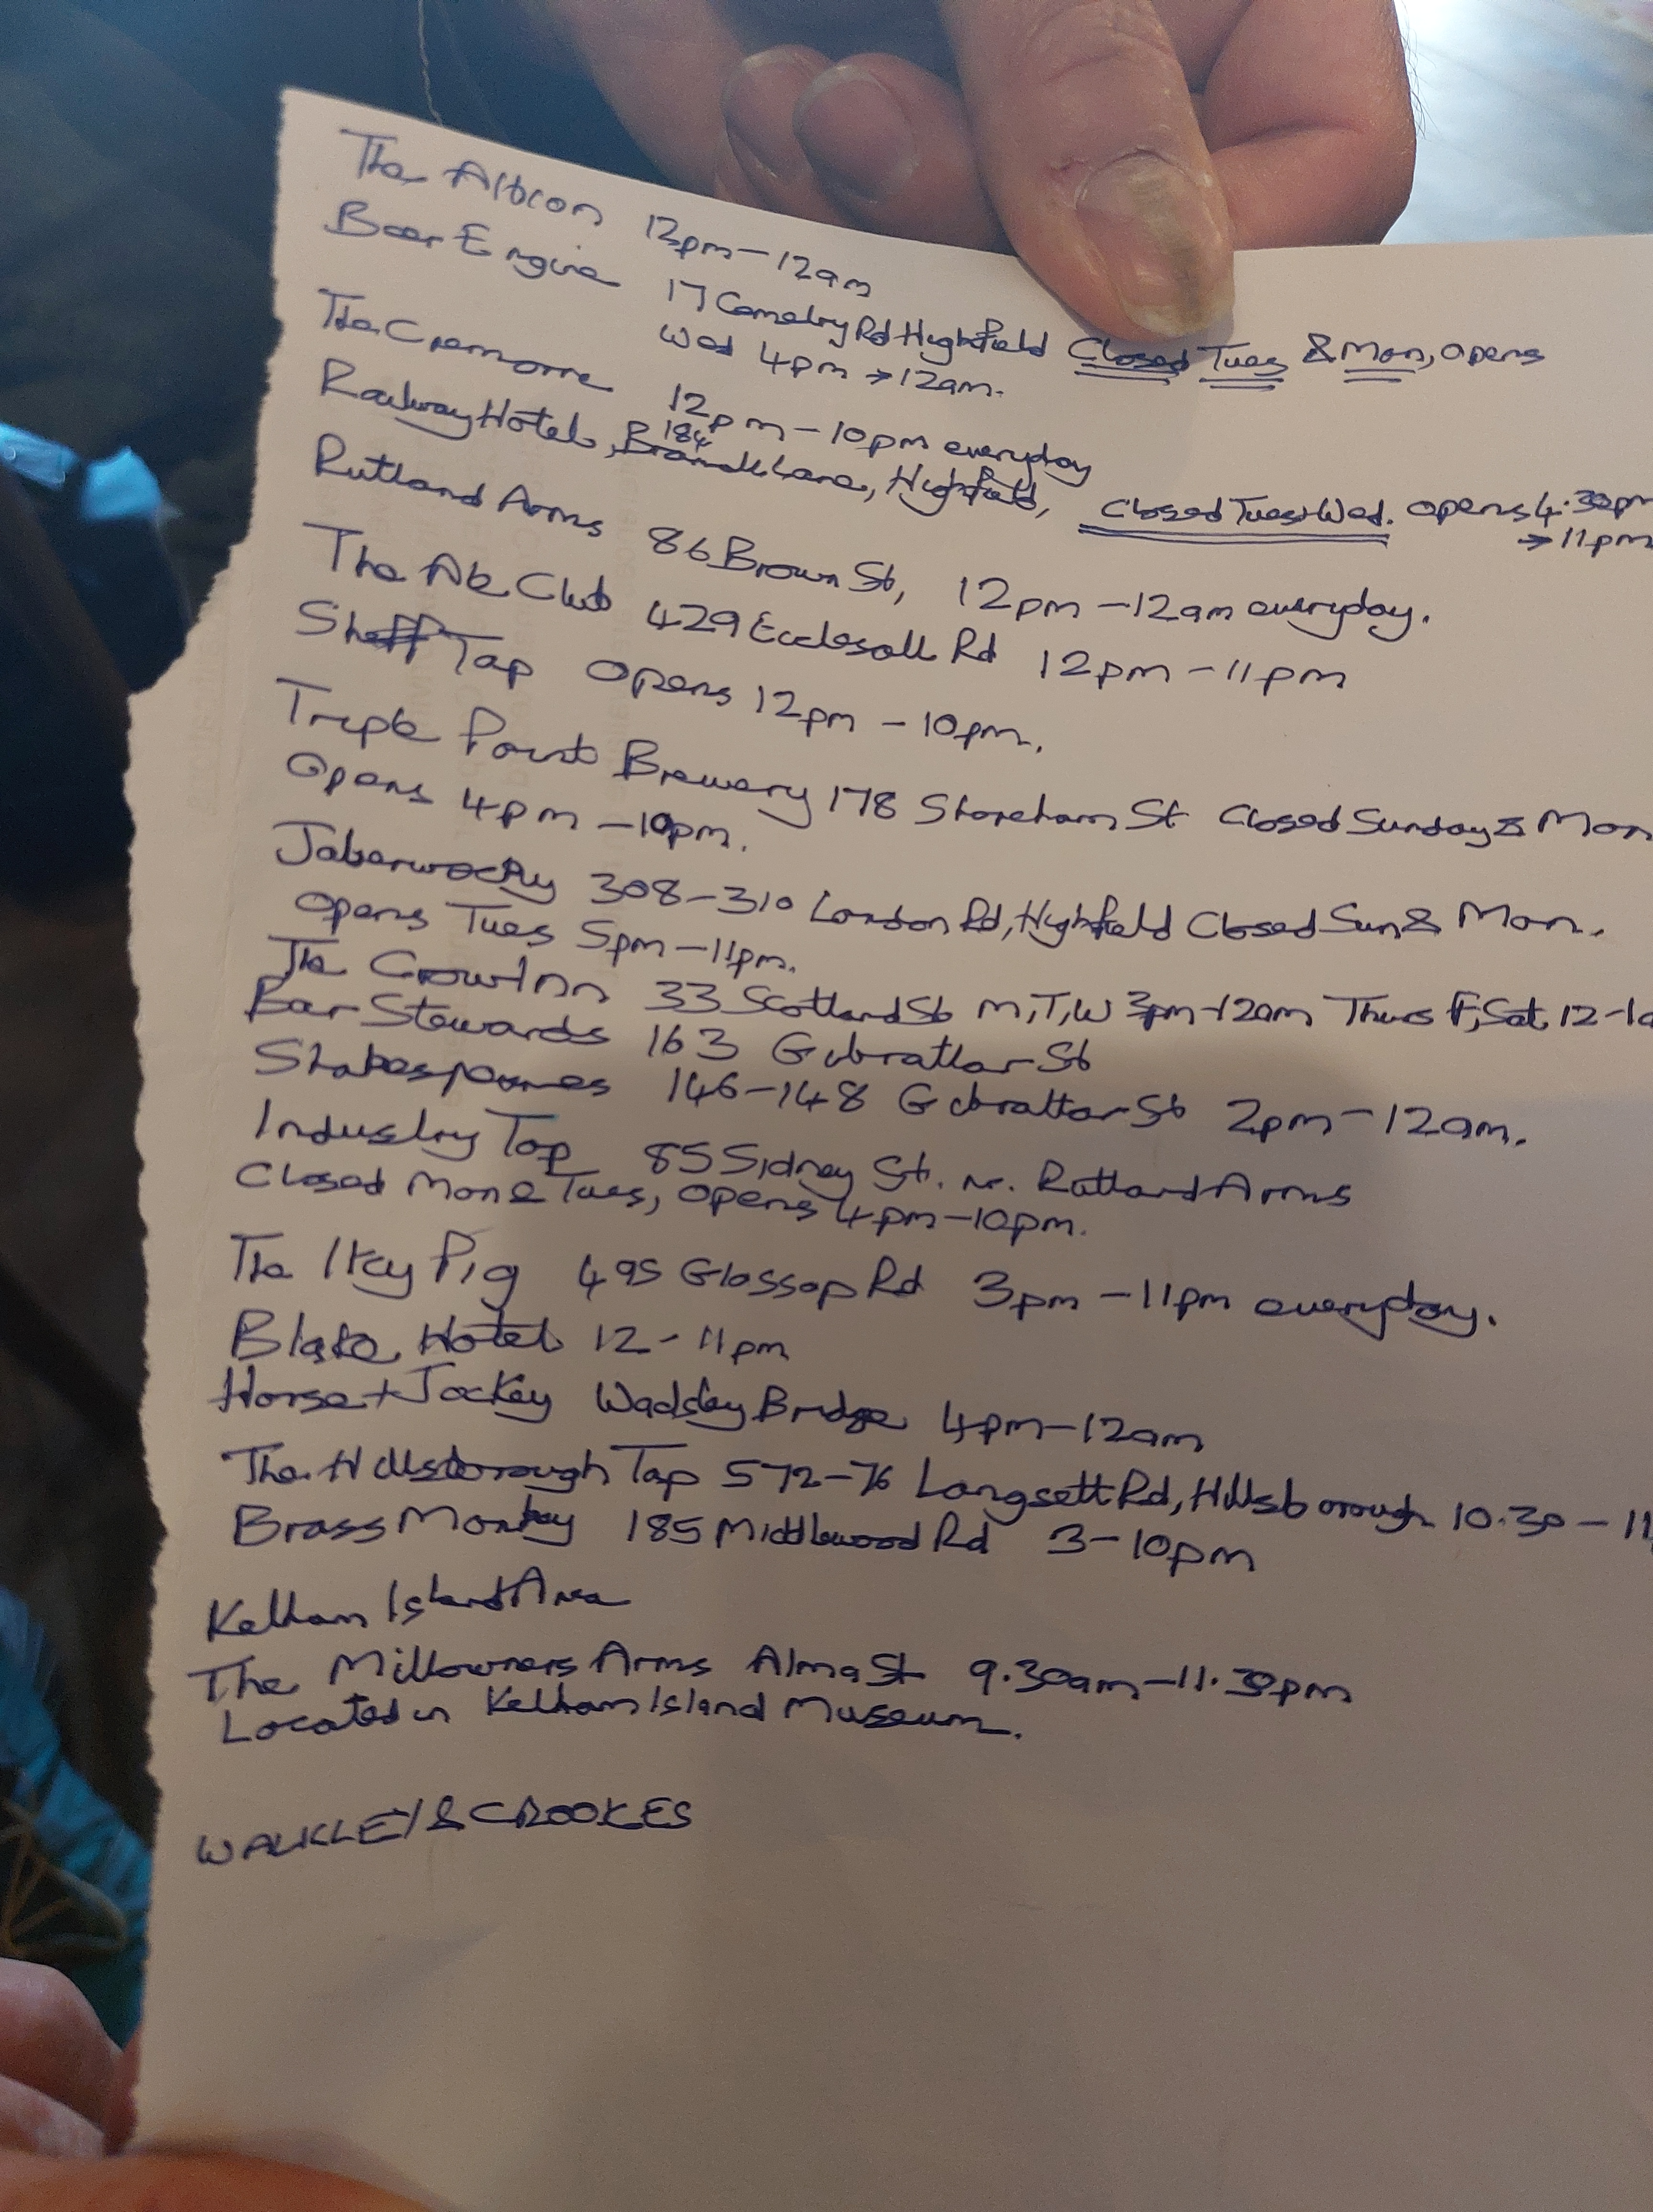 The Albion 12pm-12am
Beer Engine 17 Cemetry Rd Highfield Closed Tues & Mon, opens
Wed 4pm → 12am.
The Cremorne 12pm-10pm everyday
Railway Hotel, 184 Bramall Lane, Highfield, Closed Tues+Wed. opens 4.30pm
→ 11pm
Rutland Arms 86 Brown St, 12pm-12am everyday.
The Ale Club 429 Ecclesall Rd 12pm-11pm
Sheff Tap Opens 12pm-10pm.
Triple Point Brewery 178 Shoreham St Closed Sunday & Mon
Opens 4pm-10pm.
Jaberwocky 308-310 London Rd, Highfield Closed Sun & Mon.
Opens Tues 5pm-11pm.
The Crow Inn 33 Scotland St M,T,W 3pm-12am Thurs F,Sat 12-1a
Bar Stewards 163 Gibraltar St
Shakespeares 146-148 Gibraltar St 2pm-12am.
Industry Tap 85 Sidney St. nr. Rutland Arms
Closed Mon & Tues, opens 4pm-10pm.
The Itchy Pig 495 Glossop Rd 3pm-11pm everyday.
Blake Hotel 12-11pm
Horse + Jockey Wadsley Bridge 4pm-12am
The Hillsborough Tap 572-76 Langsett Rd, Hillsborough 10.30-11
Brass Monkey 185 Middlewood Rd 3-10pm
Kelham Island Area
The Millowners Arms Alma St 9.30am-11.30pm
Located in Kelham Island Museum.
WALKLEY & CROOKES